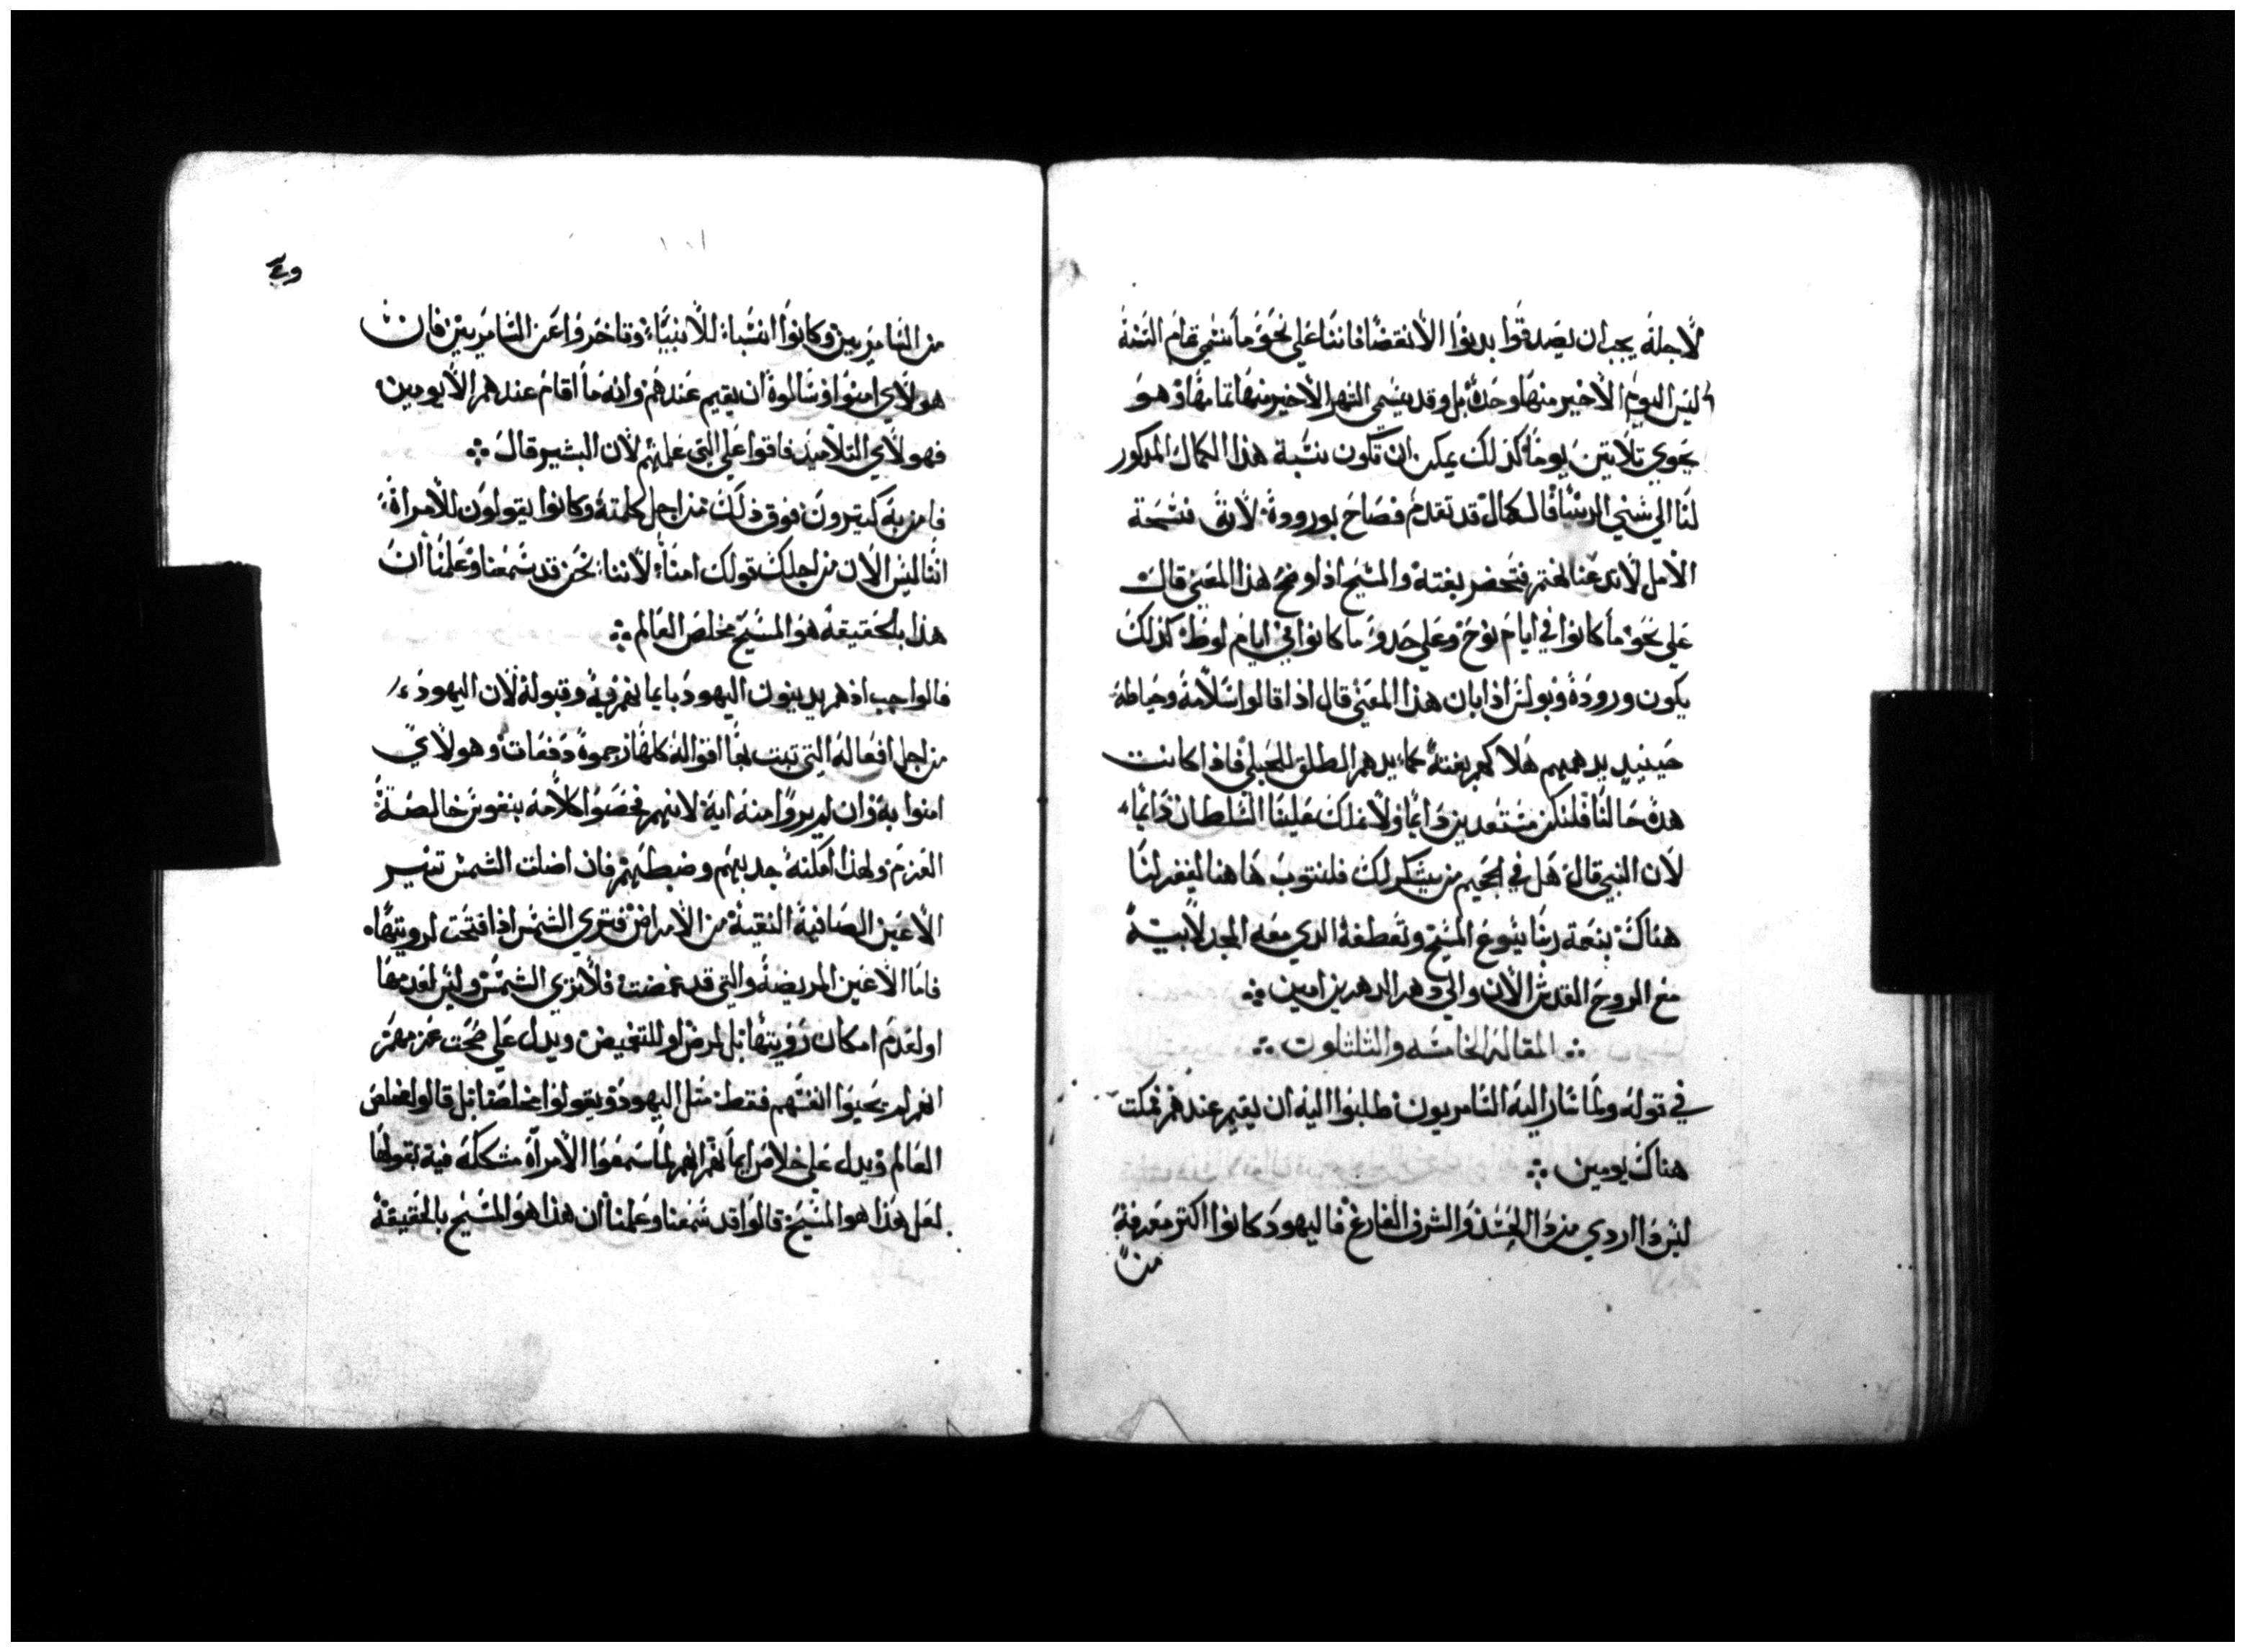 لاجله يجب ان يصدقوا بدنوا الانقضا فاننا على نحو ما نسمي تمام السنه
ليس اليوم الاخير منها وحده بل وقد يسمى الشهر الاخير منها تمامها وهو
يحوي تلاتين يوما كذلك يمكن ان تكون نسبة هذا الكمال المدكور
لنا الي سني الدنيا فالكمال قد تقدم فصاح بوروده لانق فسحة
الامل لاندعنا نعتر فتحضر بغتة والمسيح اذ اوضح هذا المعنى قال
علي نحو ما كانوا في ايام نوح وعلى حدو ما كانوا في ايام لوط كذلك
يكون وروده وبولس اذ ابان هذا المعنى قال اذا قالوا سلامه وحياطه
حينيد يدهمهم هلاكهم بغتة كما يدهم الطلق للحبلى فاذا كانت
هذه حالنا فلنكن مستعدين دايما ولا نملك علينا السلطان دايما
لان النبي قال هل في الجحيم من يشكر لك فلنتوب هاهنا ليغفر لنا
هناك بنعمة ربنا يسوع المسيح وتعطفه الدي معه المجد لابيه
مع الروح القدس الان والي دهر الدهرين امين
المقاله الخامسه والتلتاوت
في قوله ولما شار اليه السامريون طلبوا اليه ان يقيم عندهم فمكت
هناك يومين
ليس دا اردي من دا الحسد والشرف الفارغ فاليهود كانوا اكتر معرفة
من
من السامريين وكانوا انسباء للانبياء وتاخروا عن السامريين فان
هولاي امنوا وسالوه ان يقيم عندهم وانه ما اقام عندهم الا يومين
فهولاي التلاميد فاقوا على التي علمتهم لان البشير قال
فامن به كتيرون فوق ذلك من اجل كلمته وكانوا يقولون للامراة
اننا ليس الان من اجلك قولك امنا لاننا نحن قد سمعنا وعلمنا ان
هذا بالحقيقة هو المسيح مخلص العالم
فالواجب اذ هم يدينون اليهود بايمانهم به وقبوله لان اليهود
من اجل افعاله التي تبت بها اقواله كلها رجموه دفعات وهولاي
امنوا به وان لم يروا منه اية لانهم فحصوا كلامه بنفوس خالصة
العزم ولهذا امكنه جدبهم وضبطهم فان اضلت الشمس تنير
الاعين الصافية النقية من الامراض فتري الشمس اذا فتحت لرويتها
فاما الاعين المريضه والتي قد غمضت فلا تري الشمس وليس لعدمها
او لعدم امكان رؤيتها بل لمرض او للتغميض ويدل علي صحت عزمهم
انهم لم يحيوا انفسهم فقط مثل اليهود ويقولوا مخلصنا بل قالوا مخلص
العالم ويدل على خلاص ايمانهم انهم لما سمعوا الامراة مشككه فيه بقولها
لعل هذا هو المسيح قالوا قد سمعنا وعلمنا ان هذا هو المسيح بالحقيقة